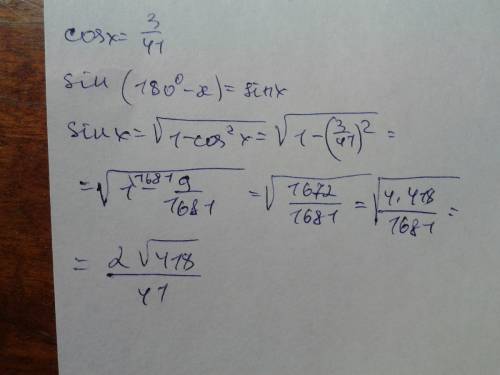 cosx = 3/41
sin (180° - x) = sinx
sinx = √(1-cos²x) = √(1-(3/41)²) =
= √(1^1681 - 9/1681) = √(1672/1681) = √(4·418/1681) =
= 2√418/41